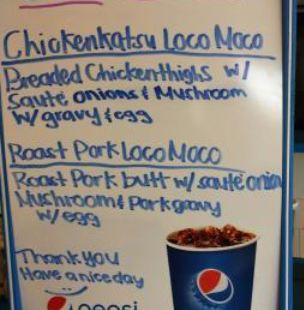 Chickenkatsu Loco Moco
Breaded Chickenthighs w/
Sauté onions & Mushroom
w/ gravy & egg
Roast Pork Loco Moco
Roast Pork butt w/ sauté onion
Mushroom & Pork gravy
w/ egg
Thank You
Have a nice day
pepsi